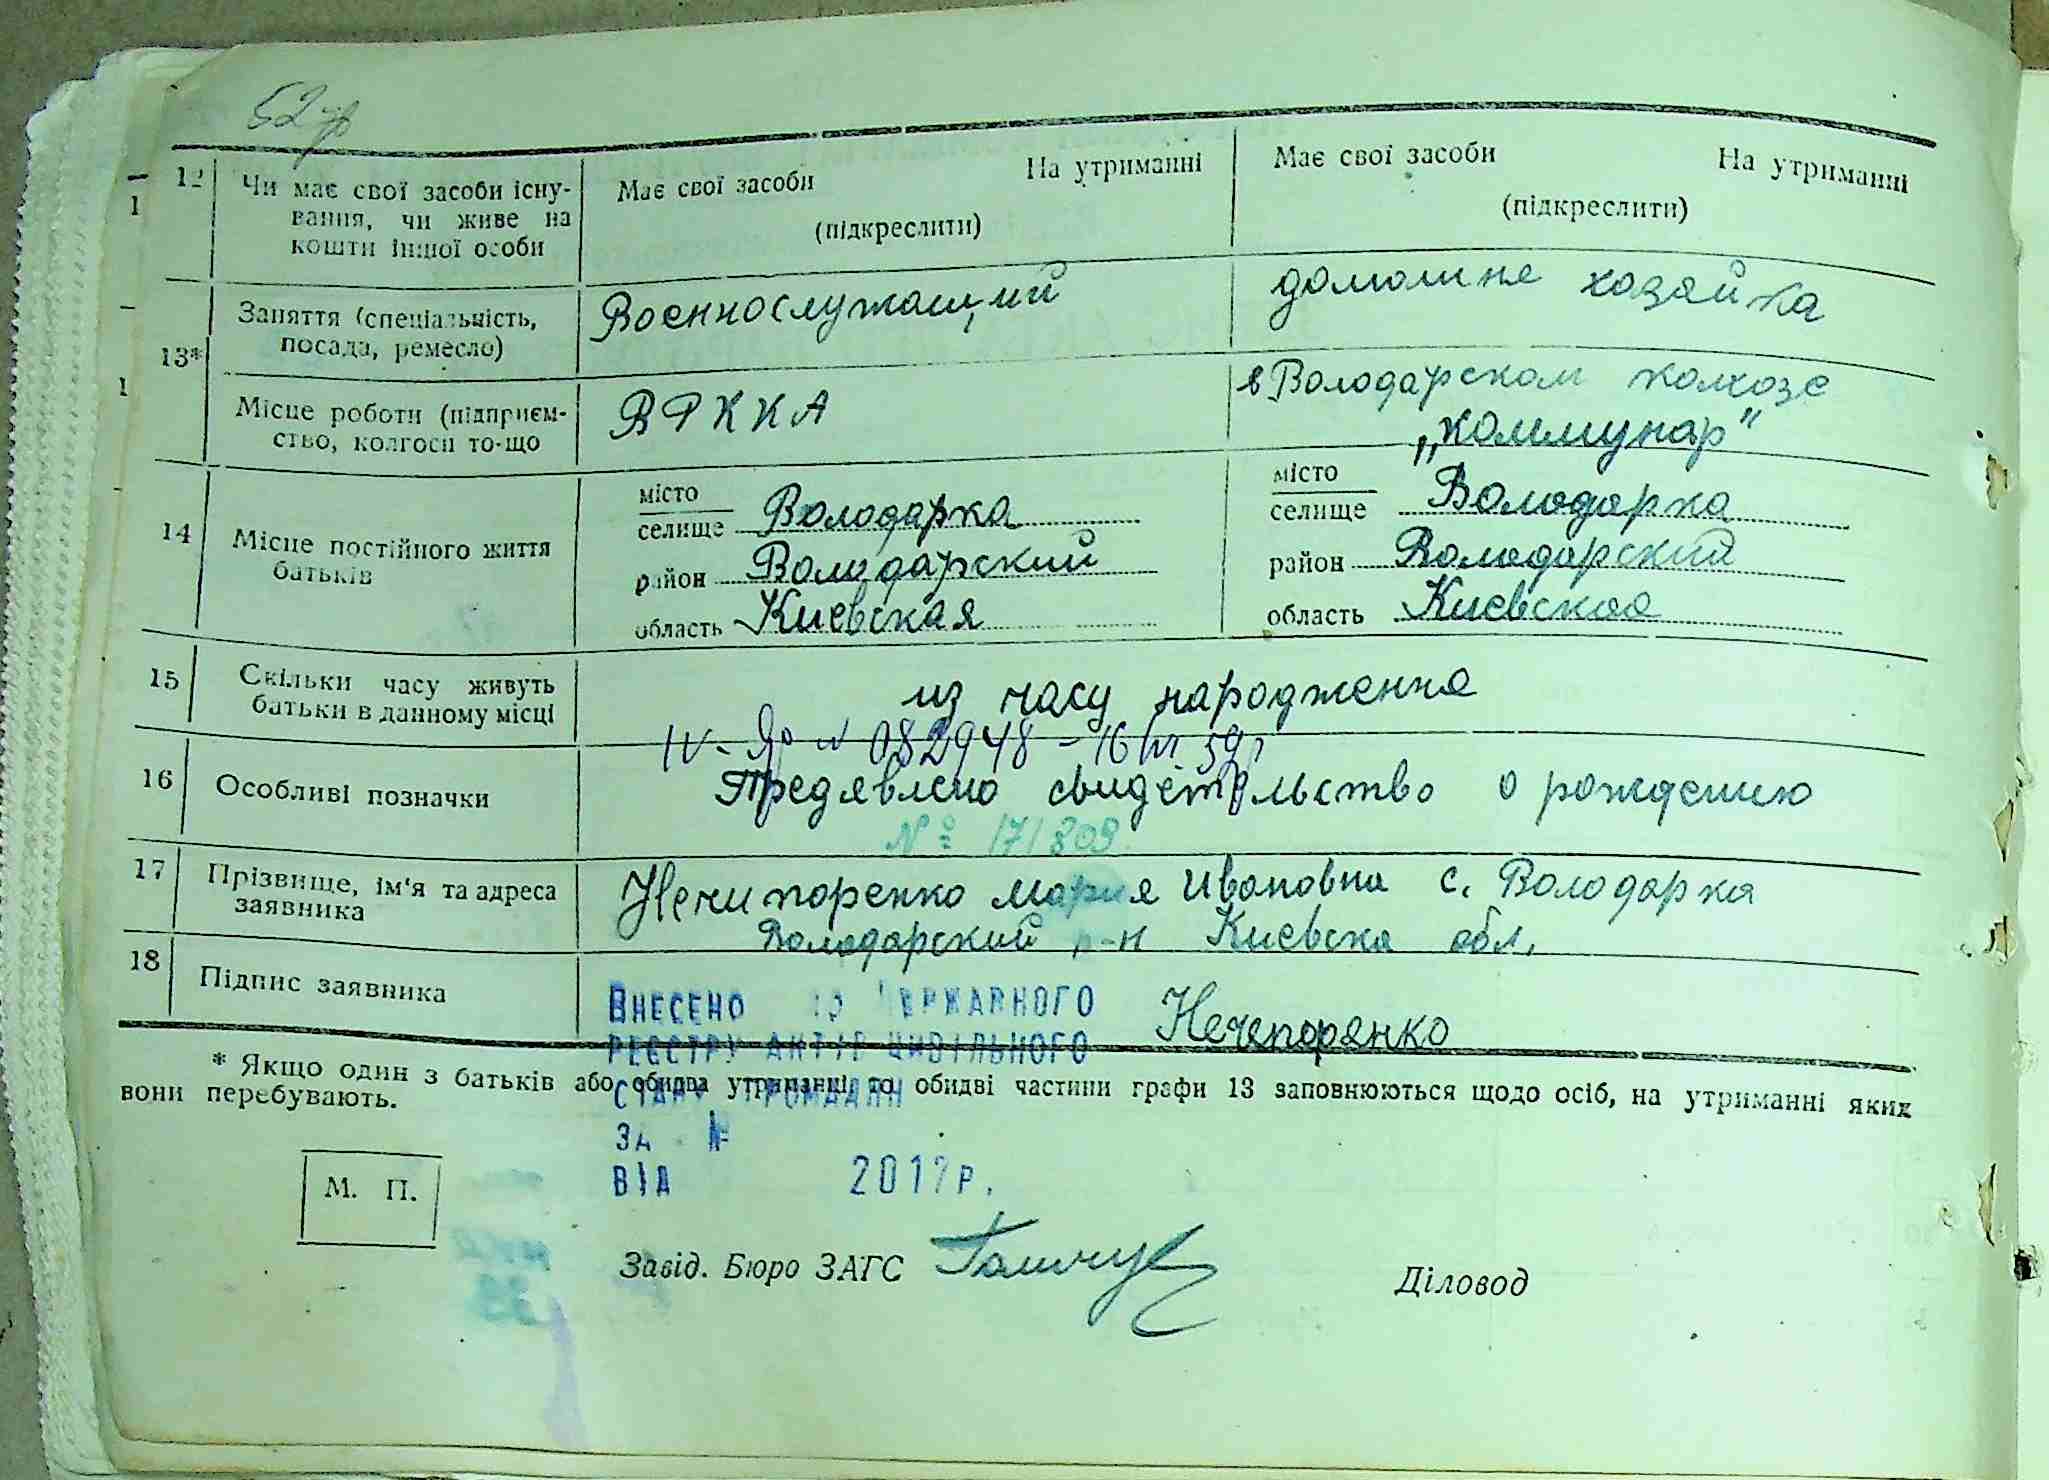 52
12 Чи має свої засоби існу- Має свої засоби На утриманні Має свої засоби На утриманні
вання, чи живе на (підкреслити) (підкреслити)
кошти іншої особи
13* Заняття (спеціальність, Военнослужащий домашня хазяйка
посада, ремесло)
Місце роботи (підприєм- В РККА в Володарском колхозе
ство, колгосп то-що „Коммунар"
14 Місце постійного життя місто місто
батьків селище Володарка селище Володарка
район Володарский район Володарский
область Киевская область Киевская
15 Скільки часу живуть из часу народження
батьки в данному місці
IV- № 082948 - 59
16 Особливі позначки Предявлено свидетельство о рождению
№ 171809
17 Прізвище, ім'я та адреса Нечипоренко Мария Ивановна с. Володарка
заявника Володарский р-н Киевска обл.
18 Підпис заявника Нечепоренко
ВНЕСЕНО ДО ДЕРЖАВНОГО
РЕЄСТРУ АКТІВ ЦИВІЛЬНОГО
СТАНУ ГРОМАДЯН
ЗА №
ВІД 201 р.
* Якщо один з батьків або обидва утриманні, то обидві частини графи 13 заповнюються щодо осіб, на утриманні яких
вони перебувають.
М. П.
Завід. Бюро ЗАГС Діловод